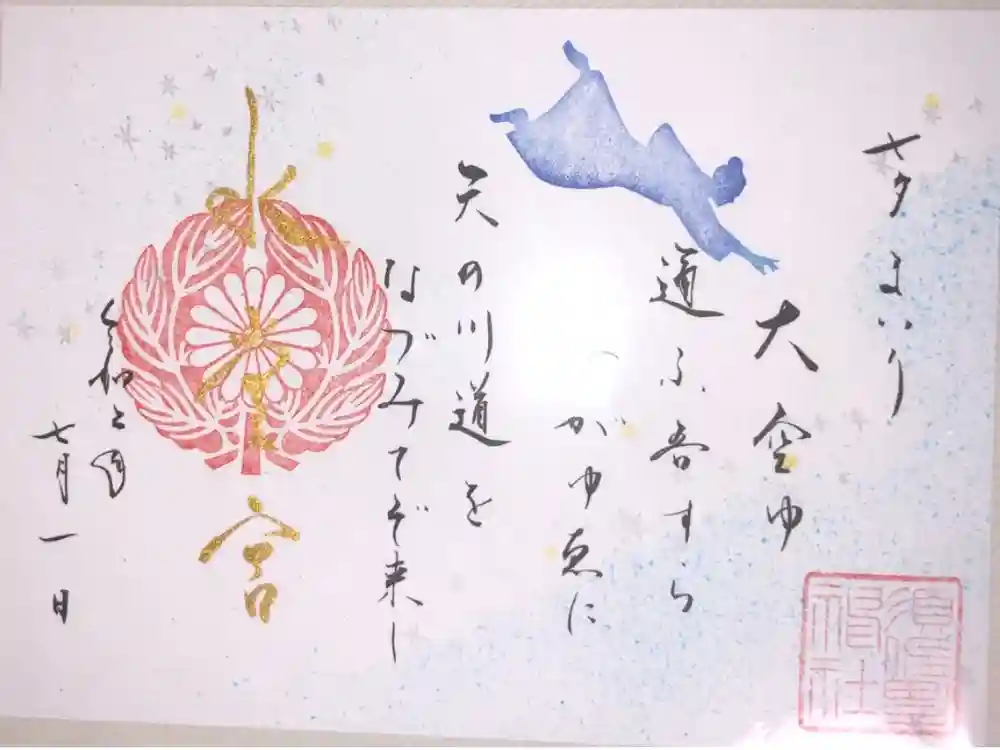 七夕まいり
大空ゆ
通ふ吾すら
がゆゑに
天の川道を
なづみてぞ来し
宮
令和二年
七月一日
須賀
神社